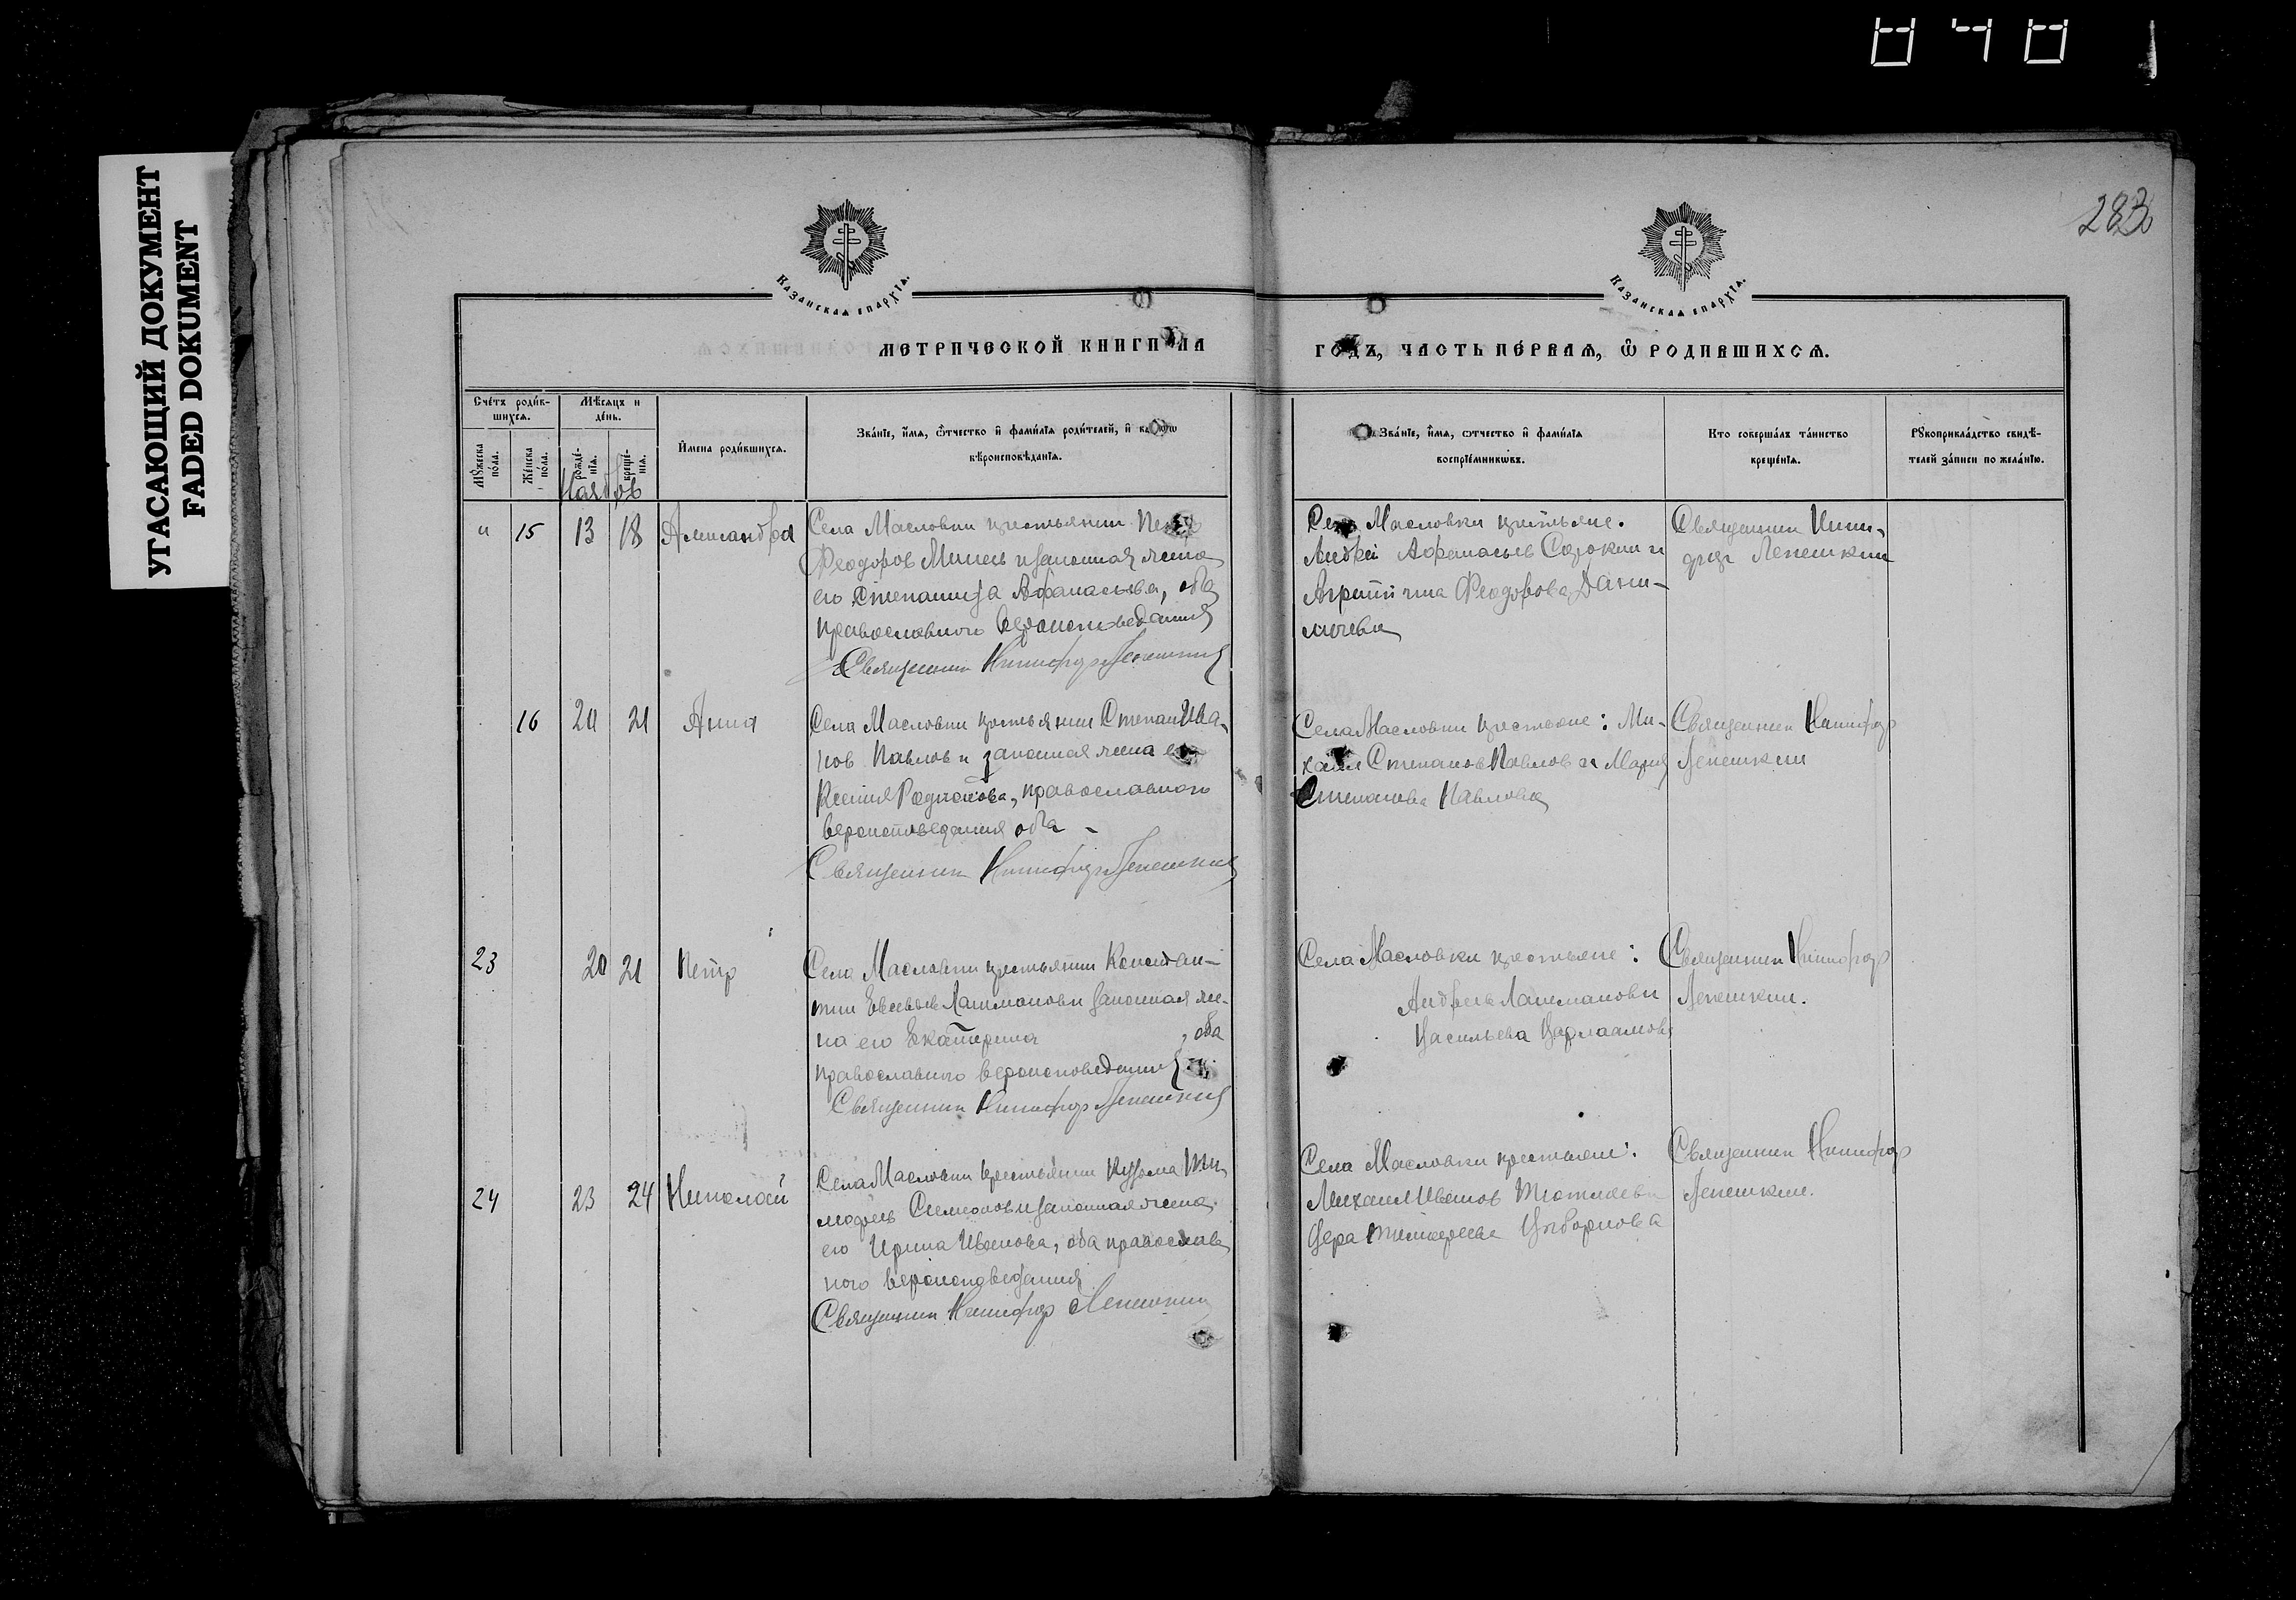 УГАСАЮЩИЙ ДОКУМЕНТ
FADED DOKUMENT
283
Казанская епархїа.
Казанская епархїа.
МЕТРИЧЕСКОЙ КНИГИ НА
ГОДЪ, ЧАСТЬ ПЕРВАЯ, Ѿ РОДИВШИХСЯ.
Счетъ родив-
шихся.
Мѣсяцъ и
день.
Мужеска
пола.
Женска
пола.
рожде-
нїя.
креще-
нїя.
Имена родившихся.
Званїе, имя, ѿчество и фамилїя родителей, и
вѣроисповѣданїя.
Званїе, имя, отчество и фамилїя
воспрїемниковъ.
Кто совершалъ таинство
крещенїя.
Рукоприкладство свидѣ-
телей записи по желанїю.
Ноябрь
15 13 18 Александра
Села Масловки крестьянин Петр
Феодоров и законная жена
его Степанида Афанасьева, оба
православного вероисповедания
Священник Никифор Лепешкин
Села Масловки крестьяне.
Андрей Афанасьев Сорокин и
Феодорова Дани-
лычева
Священник Ники-
фор Лепешкин
16 20 21 Анна
Села Масловки крестьянин Степан Ива-
нов Павлов и законная жена его
Ксения Родионова, православного
вероисповедания оба
Священник Никифор Лепешкин
Села Масловки крестьяне: Ми-
хаил Степанов Павлов и Мария
Степанова Павлова
Священник Никифор
Лепешкин
23 20 21 Петр
Села Масловки крестьянин Констан-
тин Евсевьев и законная же-
на его Екатерина , оба
православного вероисповедания
Священник Никифор Лепешкин
Села Масловки крестьяне:
Андрей
Васильева Варлаамова
Священник Никифор
Лепешкин.
24 23 24 Николай
Села Масловки крестьянин Кузьма Ти-
мофеев Симонов и законная жена
его Ирина Иванова, оба православ
ного вероисповедания
Священник Никифор Лепешкин
Села Масловки крестьяне:
Михаил Иванов
Вера Тимофеева
Священник Никифор
Лепешкин.